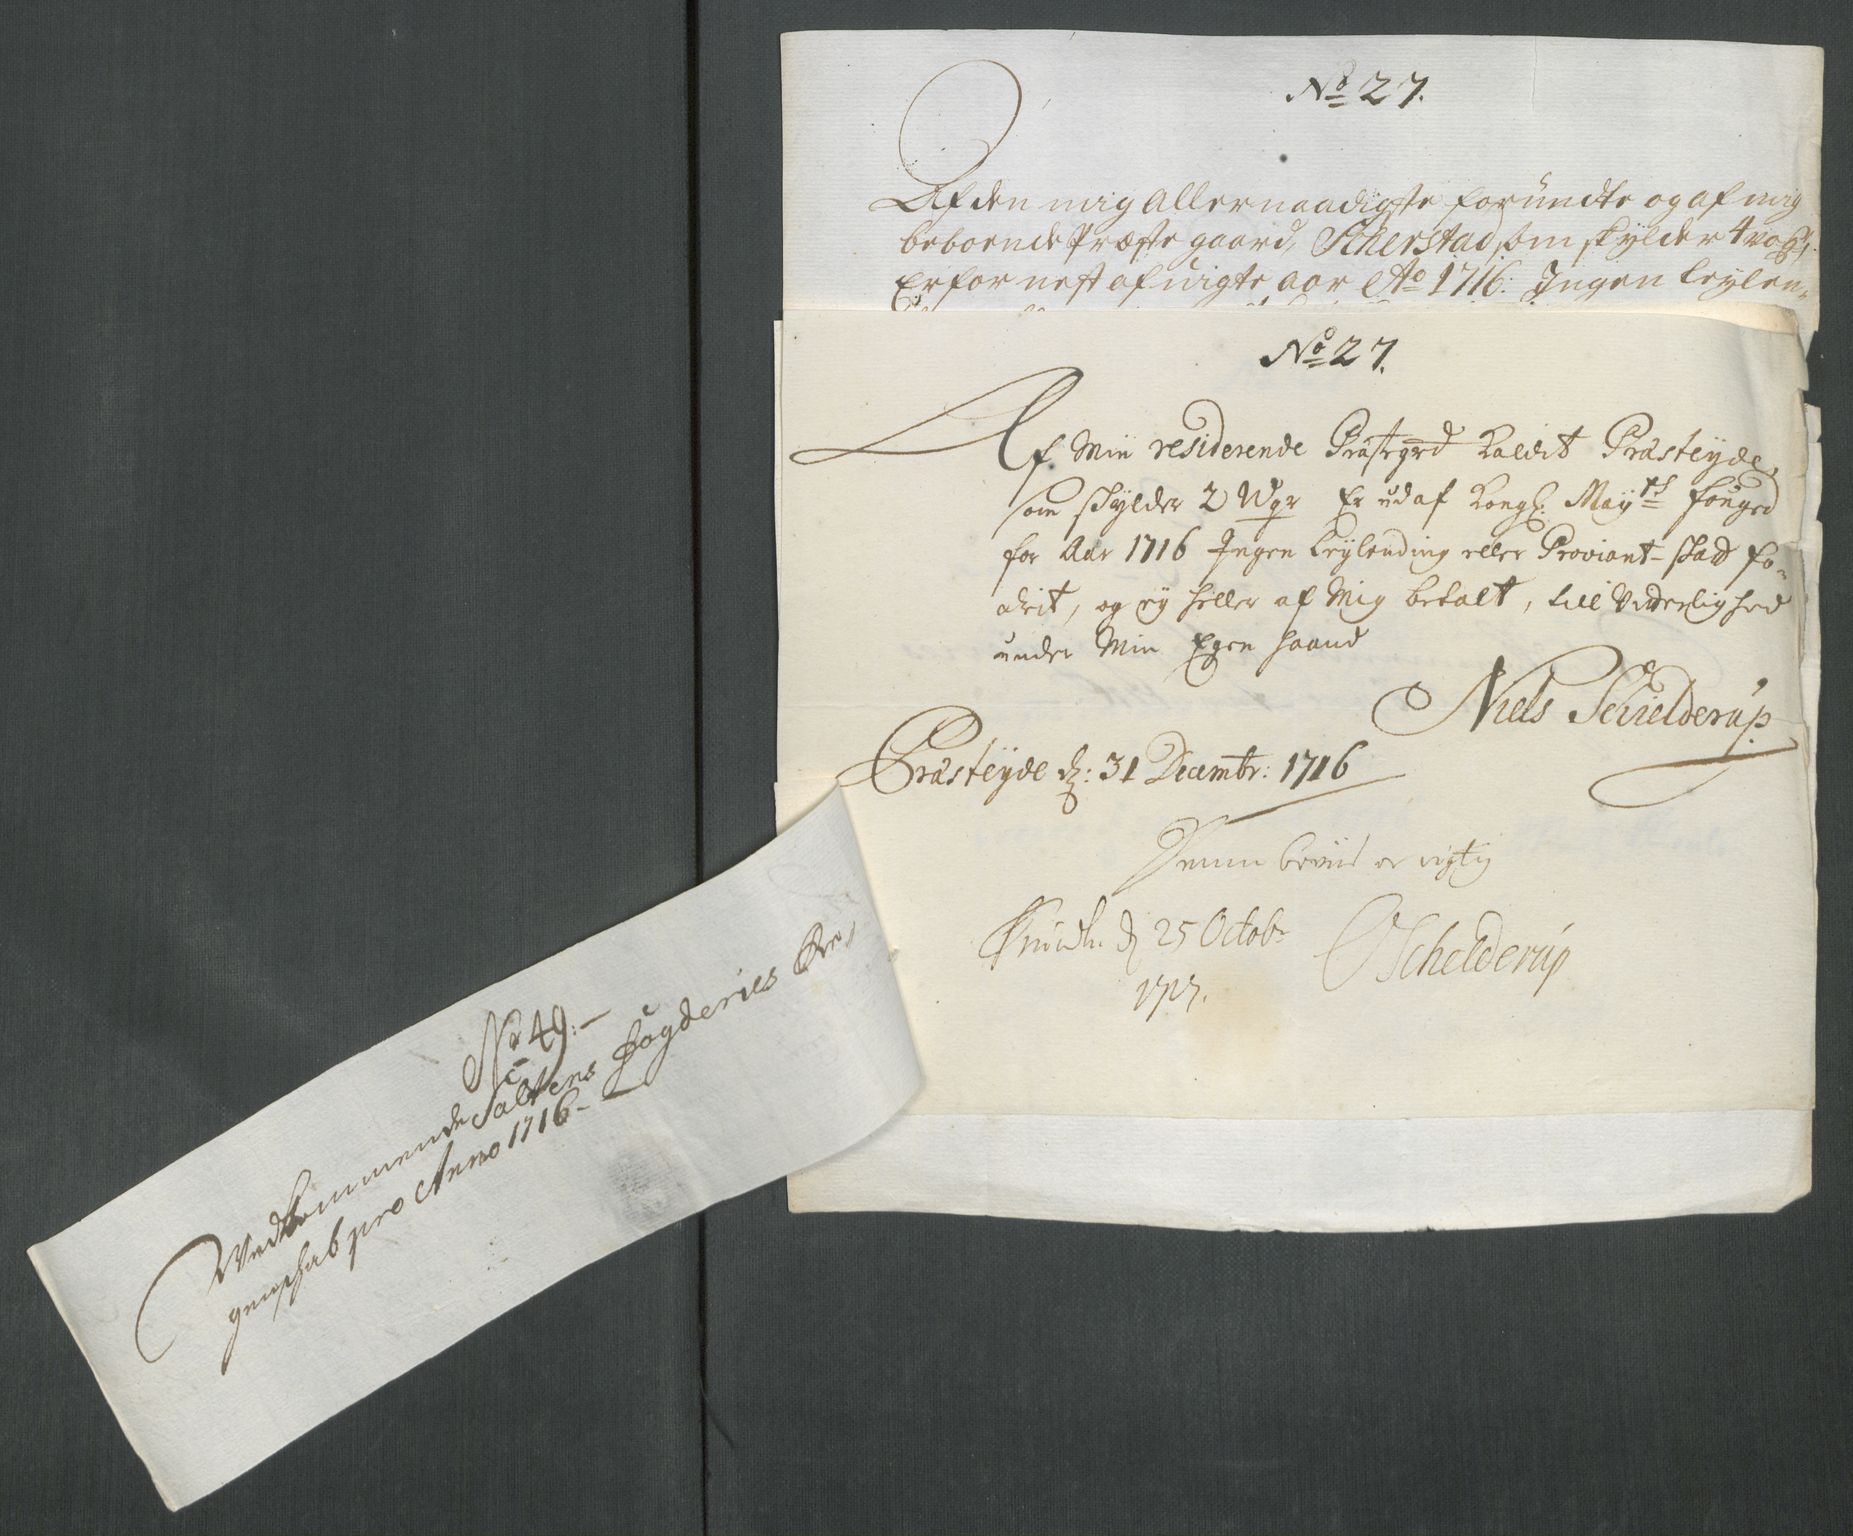 No 27.
Af den mig Allernaadigste forundte og af mig
beboende Præste gaard, Scherstad, som skylder 4 vog:
Er for nest afvigte aar Ao 1716: Ingen Leylen-
No 27.
Af Min residerende Præstegrd Kaldit Præsteyde,
som skylder 2 Wgr Er udaf Kongl: Maytz fouged
for Aar 1716 Ingen Leylending eller Proviant-skatt fo-
drit, og ey heller af Mig betalt, till Vitterlighed
under Min Egen haand
Niels Schielderup
Præsteyde d: 31 Decembr: 1716
Denne beviis er rigtig
d 25 Octobr
1717.
OSchelderup
No 49:-
Vedkommende Saltens Fogderies Re-
genschab pro Anno 1716-